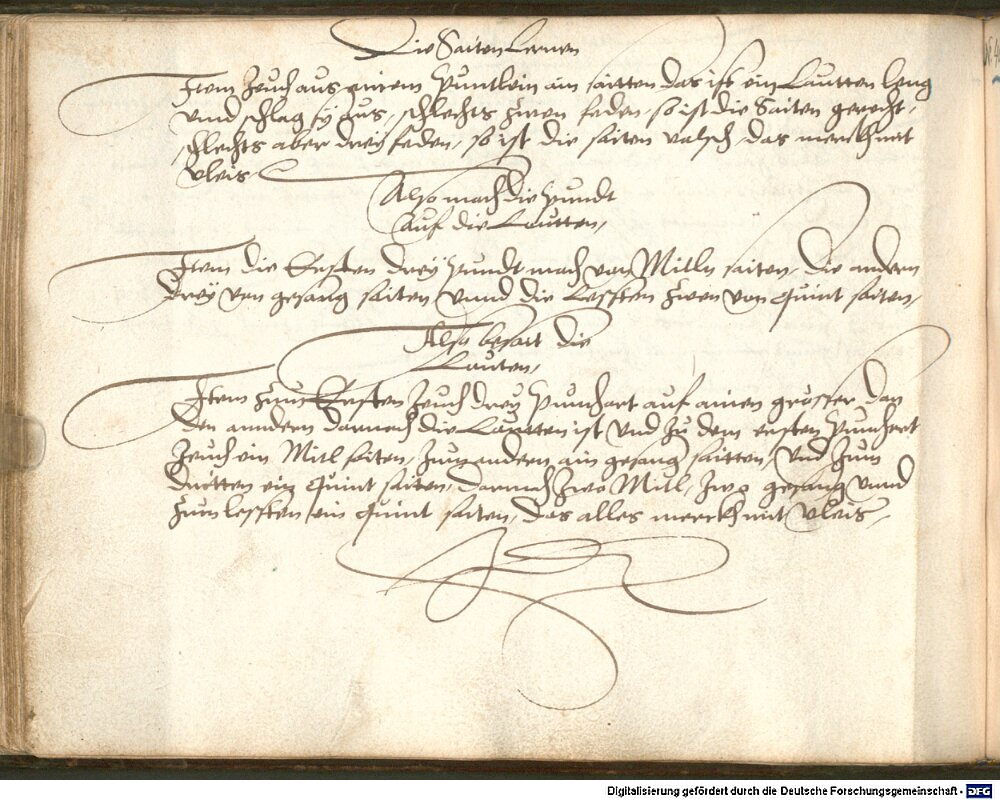 Die Saiten Lernen
Item Zeuch aus ainem Puntlein ain saitten das ist ein Lautten leng
vnnd schlag sy aus, schlechts zwen faden, so ist die Saiten gerecht,
schlechts aber drey faden, so ist die saiten valsch, das merckh mit
vleis
Also mach die Pundt
auf die Lautten,
Item die Ersten drey Pundt mach von Mitln saiten, die andern
drey von gesang saiten, vnnd die Lessten zwen von Quint saiten,
Also besait die
Lauten,
Item zum Ersten Zeuch drey Pumhart auf ainen grösser dan
den anndern darnach die Lautten ist vnd zu dem ersten Pumhert
Zeuch ein Mitl saiten, zum andern ain gesang saitten, vnd zum
dritten ein Quint saiten, darnach zwo Mitl, zwo gesang vnnd
zum lessten ein Quint saiten, das alles merckh mit vleis,
Digitalisierung gefördert durch die Deutsche Forschungsgemeinschaft - DFG